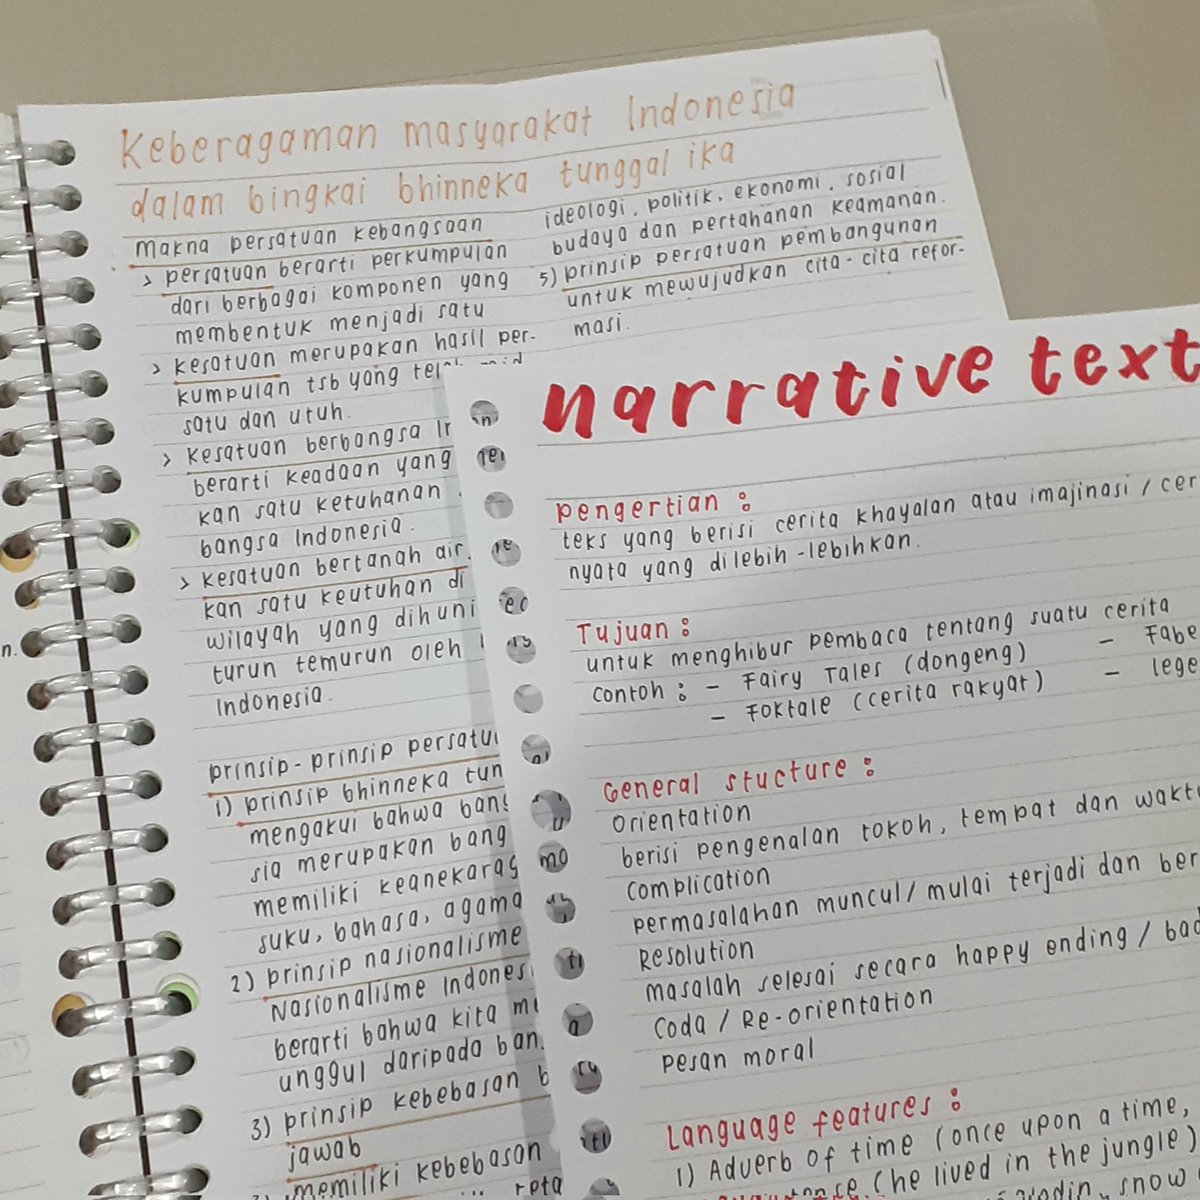 Keberagaman masyarakat Indonesia
dalam bingkai bhinneka tunggal ika
Makna persatuan kebangsaan
> persatuan berarti perkumpulan
dari berbagai komponen yang
membentuk menjadi satu
> kesatuan merupakan hasil per-
kumpulan tsb yang
satu dan utuh.
> kesatuan berbangsa
berarti keadaan yang
kan satu ketuhanan
bangsa Indonesia.
> kesatuan bertanah air
kan satu keutuhan di
wilayah yang dihuni
turun temurun oleh
Indonesia.
prinsip-prinsip
1) prinsip bhinneka
mengakui bahwa
sia merupakan
memiliki
suku, bahasa, agama
2) prinsip nasionalisme
Nasionalisme
berarti bahwa kita
unggul daripada
3) prinsip kebebasan
jawab
memiliki kebebasan
ideologi, politik, ekonomi, sosial
budaya dan pertahanan keamanan.
5) prinsip persatuan pembangunan
untuk mewujudkan cita-cita refor-
masi.
narrative text
pengertian :
teks yang berisi cerita khayalan atau imajinasi /
nyata yang dilebih-lebihkan.
Tujuan :
untuk menghibur pembaca tentang suatu cerita
contoh : - Fairy Tales (dongeng) -
- Foktale (cerita rakyat) -
General stucture :
Orientation
berisi pengenalan tokoh, tempat dan waktu
complication
permasalahan muncul / mulai terjadi dan
Resolution
masalah selesai secara happy ending /
Coda / Re-orientation
pesan moral
Language features :
1) Adverb of time (once upon a time,
(he lived in the jungle)
snow